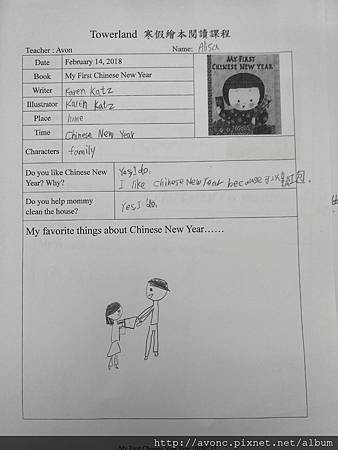 Towerland 寒假繪本閱讀課程
Teacher : Avon
Name: Alisa
Date February 14, 2018
Book My First Chinese New Year
MY FIRST
CHINESE NEW YEAR
Writer Karen Katz
Illustrator Karen Katz
Place home
Time Chinese New Year
Characters family
Do you like Chinese New
Year? Why?
Yes, I do.
I like Chinese New Year because 可以拿紅包.
Do you help mommy
clean the house?
Yes, I do.
My favorite things about Chinese New Year……
http://avonc.pixnet.net/album